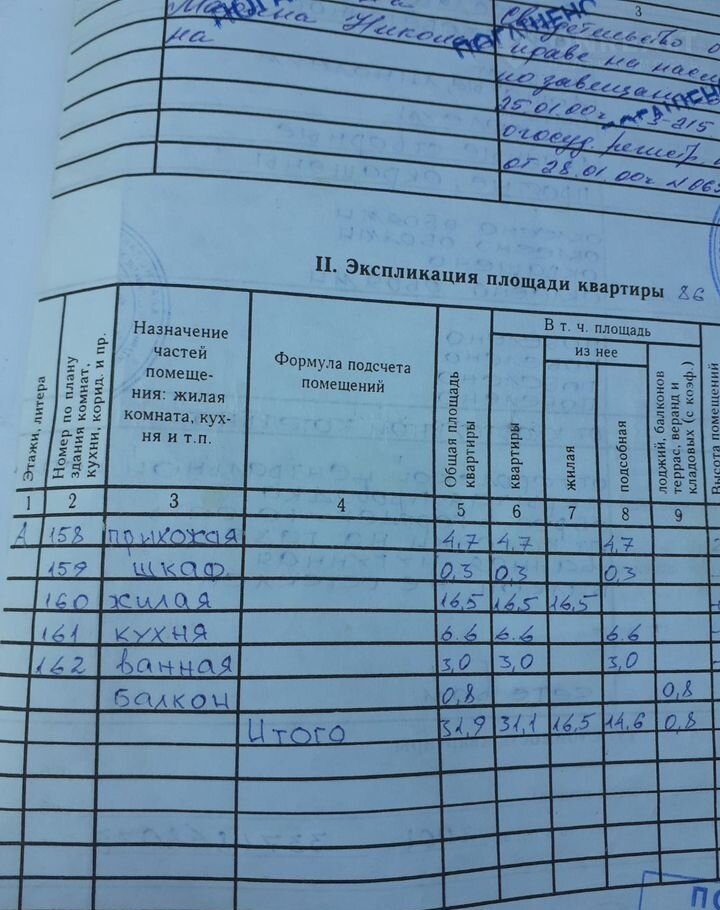 3
Никола
на
Свидетельство о
праве на насл
по завещан
25.01.00г. 3-215
о госуд. регистр.
от 28.01.00г. N 06
ПОГАШЕНО
II. Экспликация площади квартиры 86
Этажи, литера
Номер по плану здания комнат, кухни, корид. и пр.
Назначение частей помеще- ния: жилая комната, кух- ня и т.п.
Формула подсчета помещений
Общая площадь квартиры
В т. ч. площадь
из нее
квартиры
жилая
подсобная
лоджий, балконов террас, веранд и кладовых (с коэф.)
Высота помещений
1 2 3 4 5 6 7 8 9
А 158 прихожая 4,7 4,7 4,7
159 шкаф. 0,3 0,3 0,3
160 жилая 16,5 16,5 16,5
161 кухня 6.6 6.6 6.6
162 ванная 3,0 3,0 3,0
балкон 0,8 0,8
Итого 31,9 31,1 16,5 14,6 0,8
ПО